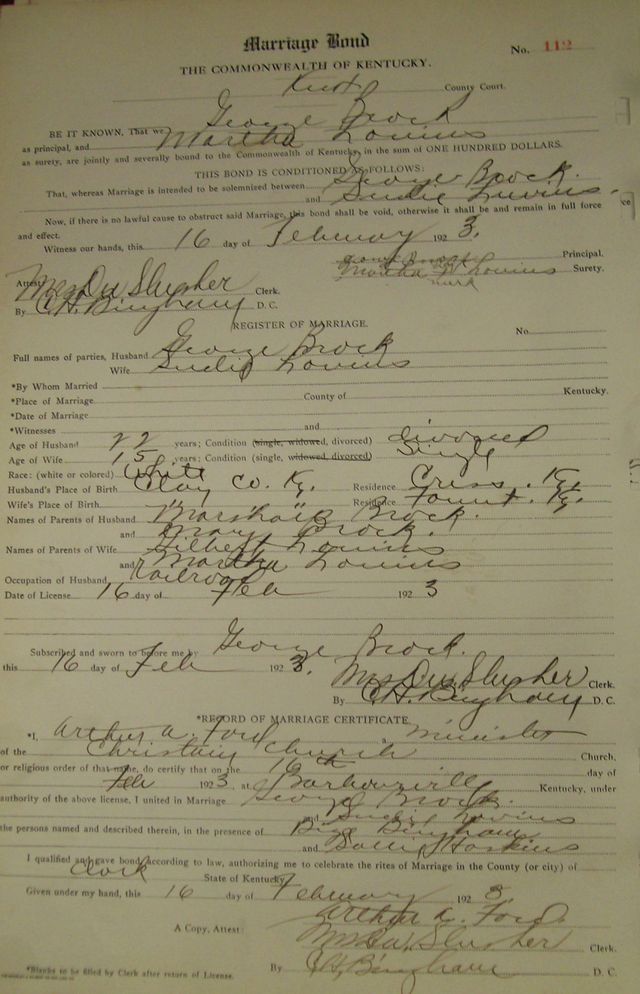 Marriage Bond
No. 112
THE COMMONWEALTH OF KENTUCKY.
Knox County Court.
BE IT KNOWN, That we George Brock
as principal, and Martha Lovins
as surety, are jointly and severally bound to the Commonwealth of Kentucky, in the sum of ONE HUNDRED DOLLARS.
THIS BOND IS CONDITIONED AS FOLLOWS:
That, whereas Marriage is intended to be solemnized between George Brock.
and Sudie Lovins.
Now, if there is no lawful cause to obstruct said Marriage, this bond shall be void, otherwise it shall be and remain in full force
and effect.
Witness our hands, this 16 day of February 1923.
George Brock Principal.
Martha Lovins Surety.
mark
Attest: Mrs Slusher Clerk.
By C. H. Bingham D. C.
REGISTER OF MARRIAGE.
No.
Full names of parties, Husband George Brock
Wife Sudie Lovins
*By Whom Married
*Place of Marriage County of Kentucky.
*Date of Marriage
*Witnesses and
Age of Husband 22 years; Condition (single, widowed, divorced) divorced
Age of Wife 15 years; Condition (single, widowed, divorced) Single
Race: (white or colored) White
Husband's Place of Birth Clay Co. Ky. Residence Ky.
Wife's Place of Birth Residence Ky.
Names of Parents of Husband Marshall Brock.
and Mary Brock.
Names of Parents of Wife Gilbert Lovins
and Martha Lovins
Occupation of Husband Railroad
Date of License 16 day of Feb 1923
Subscribed and sworn to before me by George Brock.
this 16 day of Feb 1923.
Mrs Slusher Clerk.
By C. H. Bingham D. C.
*RECORD OF MARRIAGE CERTIFICATE.
*I, Arthur A. Ford a minister
of the Christain Church Church,
or religious order of that name, do certify that on the 16th day of
Feb 1923, at Barbourville Kentucky, under
authority of the above license, I united in Marriage George Brock.
and Sudie Lovins
the persons named and described therein, in the presence of Bingham
and Hoskins
I qualified and gave bond according to law, authorizing me to celebrate the rites of Marriage in the County (or city) of
State of Kentucky.
Given under my hand, this 16 day of February 1923
Arthur A. Ford
A Copy, Attest: Mrs Slusher Clerk.
By C. H. Bingham D. C.
*Blanks to be filled by Clerk after return of License.